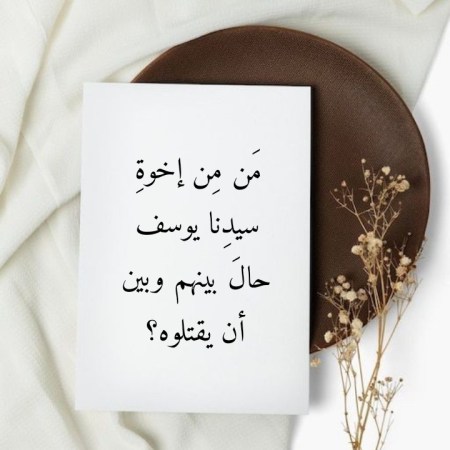 مَن مِن إخوةِ
سيدِنا يوسف
حالَ بينهم وبين
أن يقتلوه؟